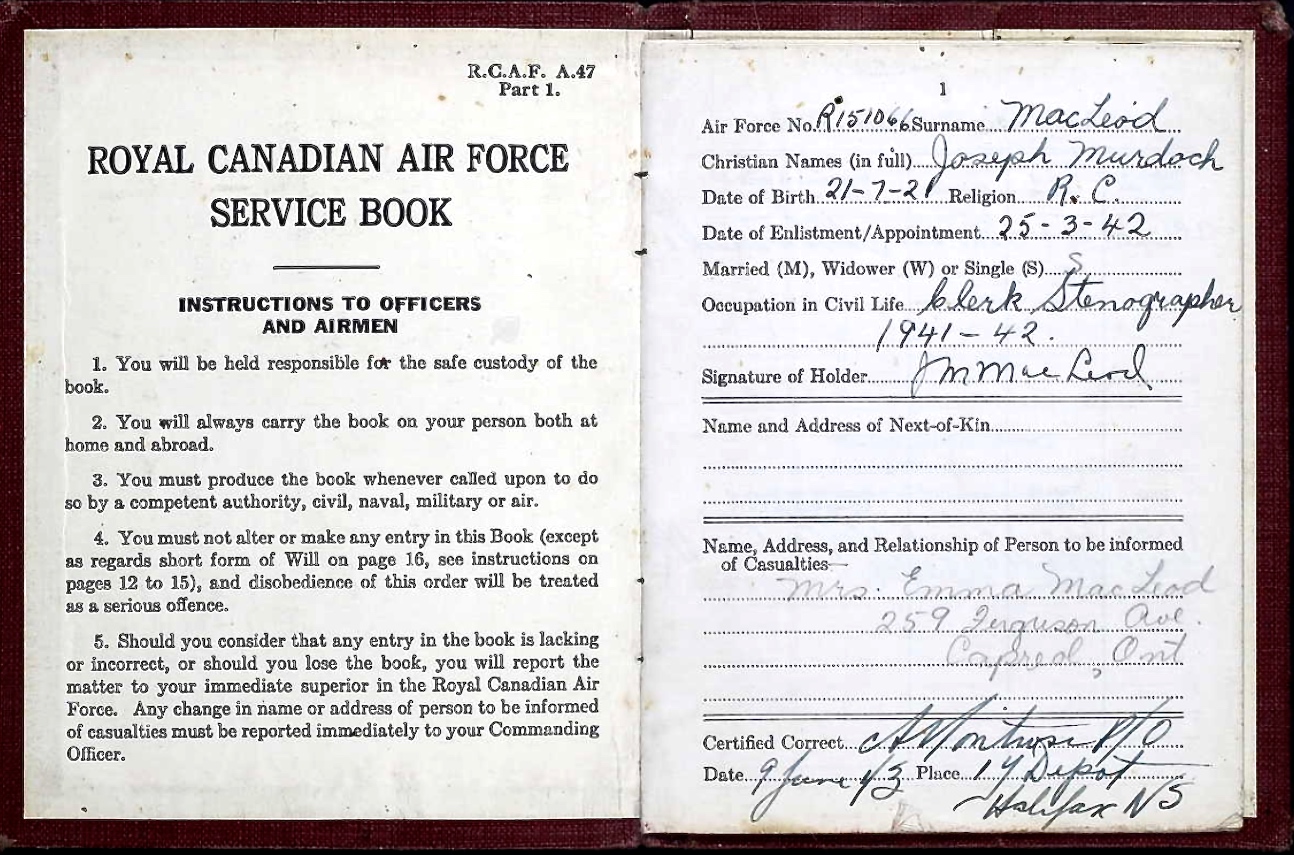 R.C.A.F. A.47
Part 1.
ROYAL CANADIAN AIR FORCE
SERVICE BOOK
INSTRUCTIONS TO OFFICERS
AND AIRMEN
1. You will be held responsible for the safe custody of the
book.
2. You will always carry the book on your person both at
home and abroad.
3. You must produce the book whenever called upon to do
so by a competent authority, civil, naval, military or air.
4. You must not alter or make any entry in this Book (except
as regards short form of Will on page 16, see instructions on
pages 12 to 15), and disobedience of this order will be treated
as a serious offence.
5. Should you consider that any entry in the book is lacking
or incorrect, or should you lose the book, you will report the
matter to your immediate superior in the Royal Canadian Air
Force. Any change in name or address of person to be informed
of casualties must be reported immediately to your Commanding
Officer.
1
Air Force No. R151066 Surname MacLeod
Christian Names (in full) Joseph Murdoch
Date of Birth 21-7-21 Religion R.C.
Date of Enlistment/Appointment 25-3-42
Married (M), Widower (W) or Single (S) S
Occupation in Civil Life Clerk Stenographer
1941-42.
Signature of Holder JM MacLeod
Name and Address of Next-of-Kin
Name, Address, and Relationship of Person to be informed
of Casualties—
Mrs. Emma MacLeod
259 Ferguson Ave.
Capreol, Ont
Certified Correct P/O
Date 9 June 43 Place 1 Y Depot
Halifax NS